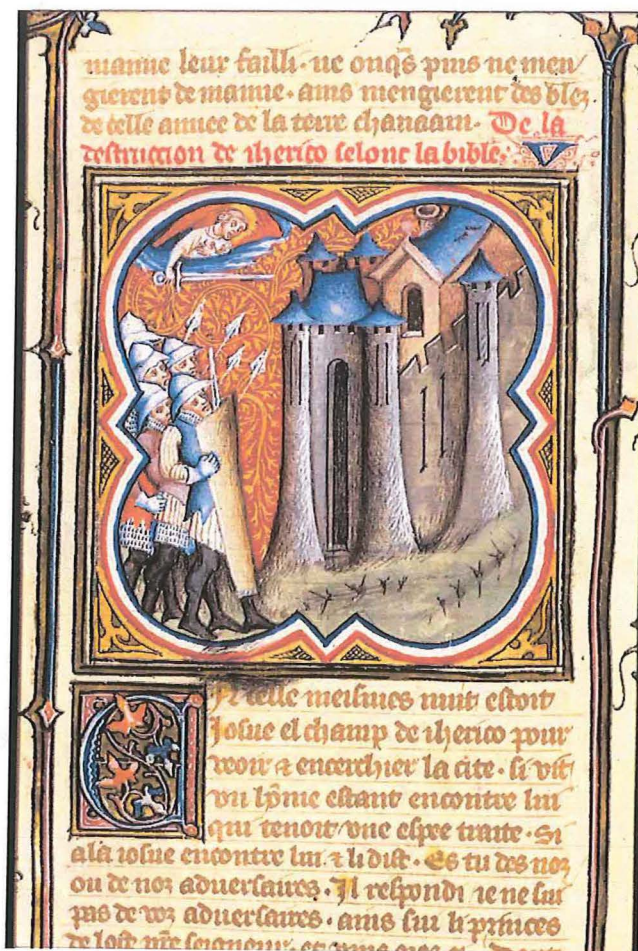 manne leur failli. ne onq̃s puis ne men/
gierent de manne. ains mengierent des blez
de celle annee de la terre chanaam. De la
destruccion de iherico selonc la bible.
En celle meismes nuit estoit
Josue el champ de iherico pour
veoir & encerchier la cite. si vit
vn hõme estant encontre lui
qui tenoit vne espee traite. Si
ala iosue encontre lui. & li dist. Es tu des noz
ou de noz aduersaires. Il respondi ie ne sui
pas de voz aduersaires. ains sui li princes
de lost nr̃e seigneur.